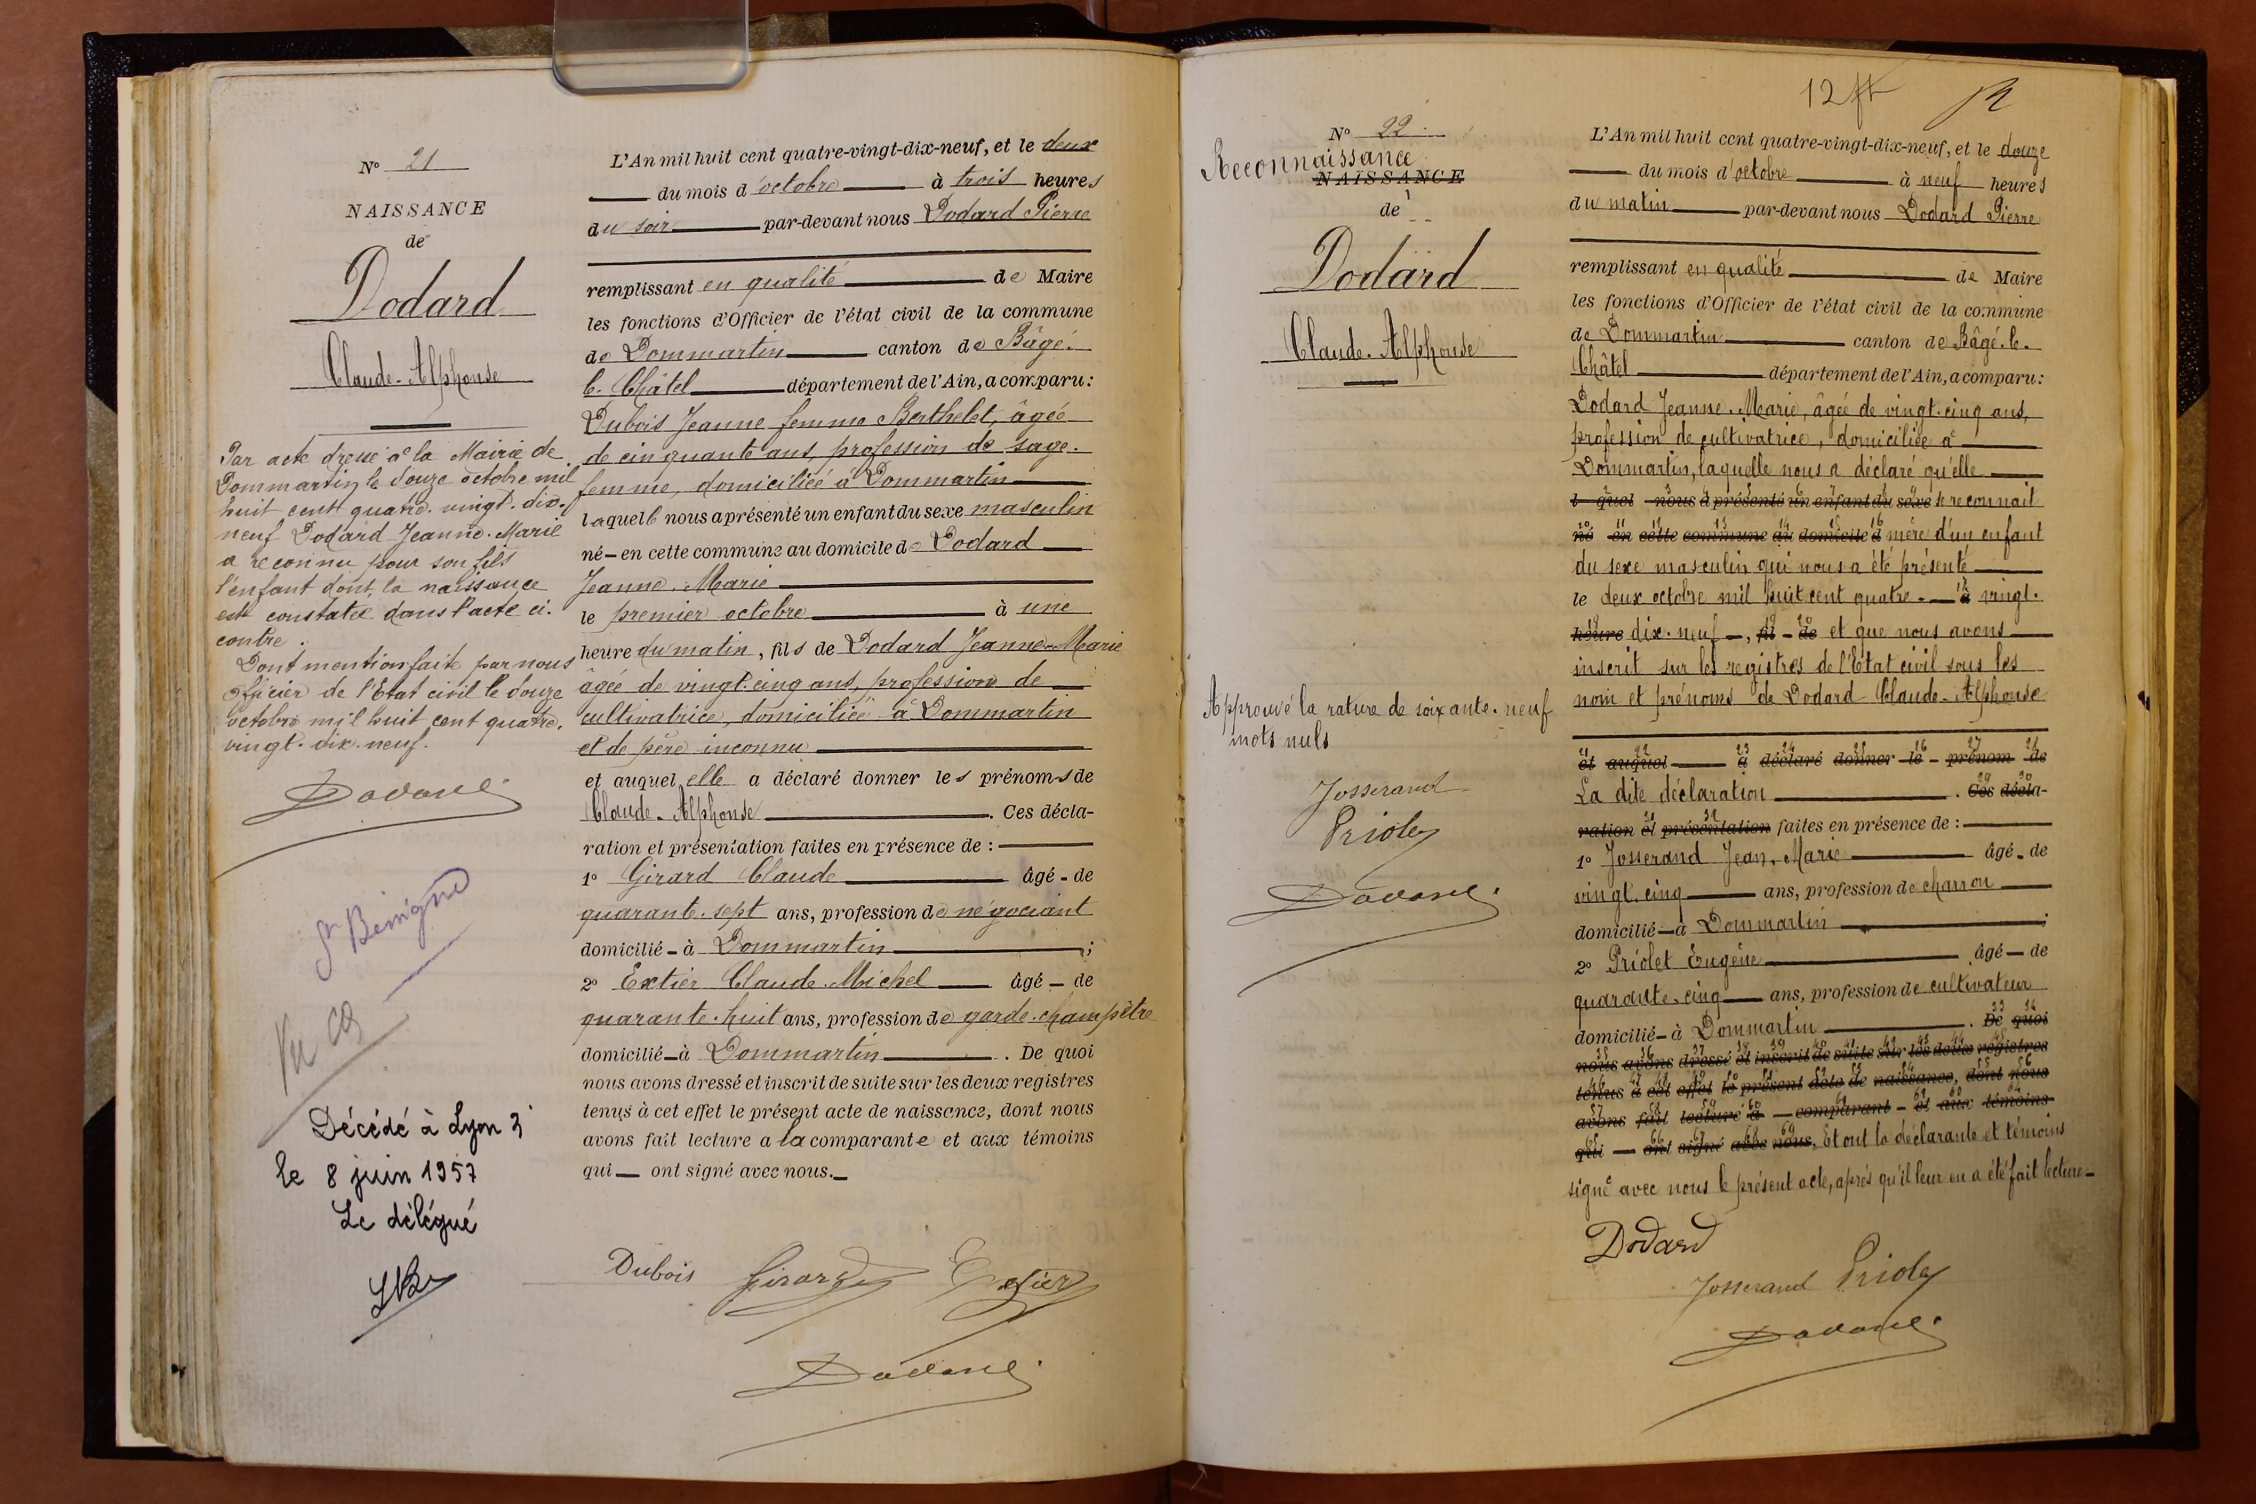 N° 21
NAISSANCE
de
Dodard
Claude-Alphonse
Par acte dressé à la Mairie de
Dommartin le douze octobre mil
huit cent quatre-vingt-dix-
neuf Dodard Jeanne-Marie
a reconnu pour son fils
l'enfant dont la naissance
est constatée dans l'acte ci-
contre.
Dont mention faite par nous
officier de l'Etat civil le douze
octobre mil huit cent quatre-
vingt-dix-neuf.
Dodard
St Bénigne
Vu
Décédé à Lyon 3
le 8 juin 1957
Le délégué
L'An mil huit cent quatre-vingt-dix-neuf, et le deux
du mois d'octobre à trois heures
du soir par-devant nous Dodard Pierre
remplissant en qualité de Maire
les fonctions d'Officier de l'état civil de la commune
de Dommartin canton de Bâgé-
le-Châtel département de l'Ain, a comparu:
Dubois Jeanne femme Berthelet, âgée
de cinquante ans, profession de sage-
femme, domiciliée à Dommartin
laquelle nous a présenté un enfant du sexe masculin
né – en cette commune au domicile de Dodard
Jeanne-Marie
le premier octobre à une
heure du matin, fils de Dodard Jeanne-Marie
âgée de vingt-cinq ans, profession de
cultivatrice, domiciliée à Dommartin
et de père inconnu
et auquel elle a déclaré donner les prénoms de
Claude-Alphonse. Ces décla-
ration et présentation faites en présence de :
1° Girard Claude âgé - de
quarante-sept ans, profession de négociant
domicilié - à Dommartin ;
2° Extier Claude-Michel âgé - de
quarante-huit ans, profession de garde-champêtre
domicilié - à Dommartin. De quoi
nous avons dressé et inscrit de suite sur les deux registres
tenus à cet effet le présent acte de naissance, dont nous
avons fait lecture a la comparante et aux témoins
qui — ont signé avec nous.
Dubois Girard Extier
Dodard
12
N° 22
Reconnaissance
NAISSANCE
de
Dodard
Claude-Alphonse
Approuvé la rature de soixante-neuf
mots nuls
Josserand
Priolet
Dodard
L'An mil huit cent quatre-vingt-dix-neuf, et le douze
du mois d'octobre à neuf heures
du matin par-devant nous Dodard Pierre
remplissant en qualité de Maire
les fonctions d'Officier de l'état civil de la commune
de Dommartin canton de Bâgé-le-
Châtel département de l'Ain, a comparu:
Dodard Jeanne-Marie, âgée de vingt-cinq ans,
profession de cultivatrice, domiciliée à
Dommartin, laquelle nous a déclaré qu'elle
l quel nous a présenté un enfant du sexe se reconnait
né en cette commune au domicile d mère d'un enfant
du sexe masculin qui nous a été présenté
le deux octobre mil huit cent quatre- à vingt-
heure dix-neuf, fil de et que nous avons
inscrit sur les registres de l'Etat civil sous les
nom et prénoms de Dodard Claude-Alphonse
et auquel a déclaré donner le prénom de
La dite déclaration. Ces décla-
ration et présentation faites en présence de :
1° Josserand Jean-Marie âgé - de
vingt-cinq ans, profession de charron
domicilié - à Dommartin ;
2° Priolet Eugène âgé - de
quarante-cinq ans, profession de cultivateur
domicilié - à Dommartin. De quoi
nous avons dressé et inscrit de suite sur les deux registres
tenus à cet effet le présent acte de naissance, dont nous
avons fait lecture à — comparant - et aux témoins
qui — ont signé avec nous. Et ont la déclarante et témoins
signé avec nous le présent acte, après qu'il leur en a été fait lecture
Dodard
Josserand Priolet
Dodard